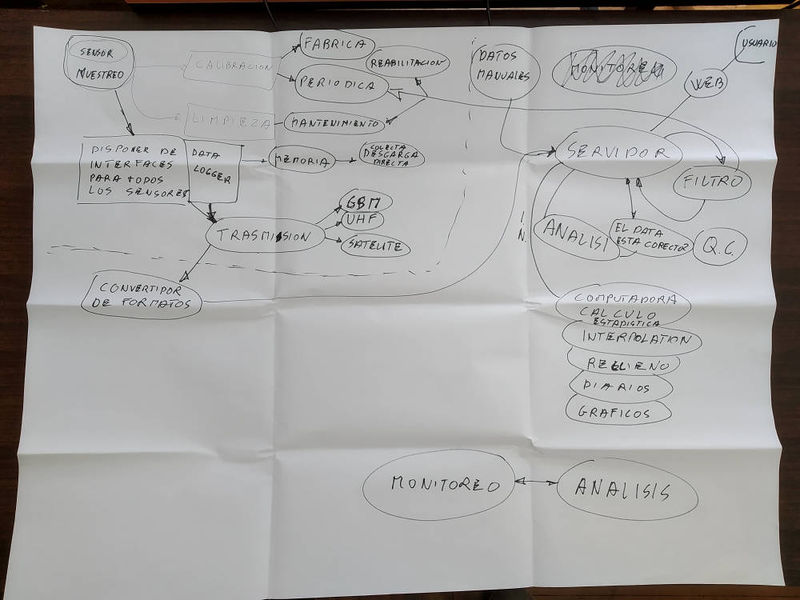 SENSOR
MUESTREO
CALIBRACION
FABRICA
REABILITACION
PERIODICA
LIMPIEZA
MANTENIMIENTO
DATOS
MANUALES
MONITOREO
USUARIO
WEB
SERVIDOR
FILTRO
DISPONER DE
INTERFACES
PARA TODOS
LOS SENSORES
DATA
LOGGER
MEMORIA
COLECTA
DESCARGA
DIRECTA
GBM
UHF
SATELITE
TRASMISION
CONVERTIDOR
DE FORMATOS
I.
N.
ANALISI
EL DATA
ESTA CORECTO?
Q.C.
COMPUTADORA
CALCULO
ESTADISTICA
INTERPOLATION
RELLIENO
DIARIOS
GRAFICOS
MONITOREO
ANALISIS